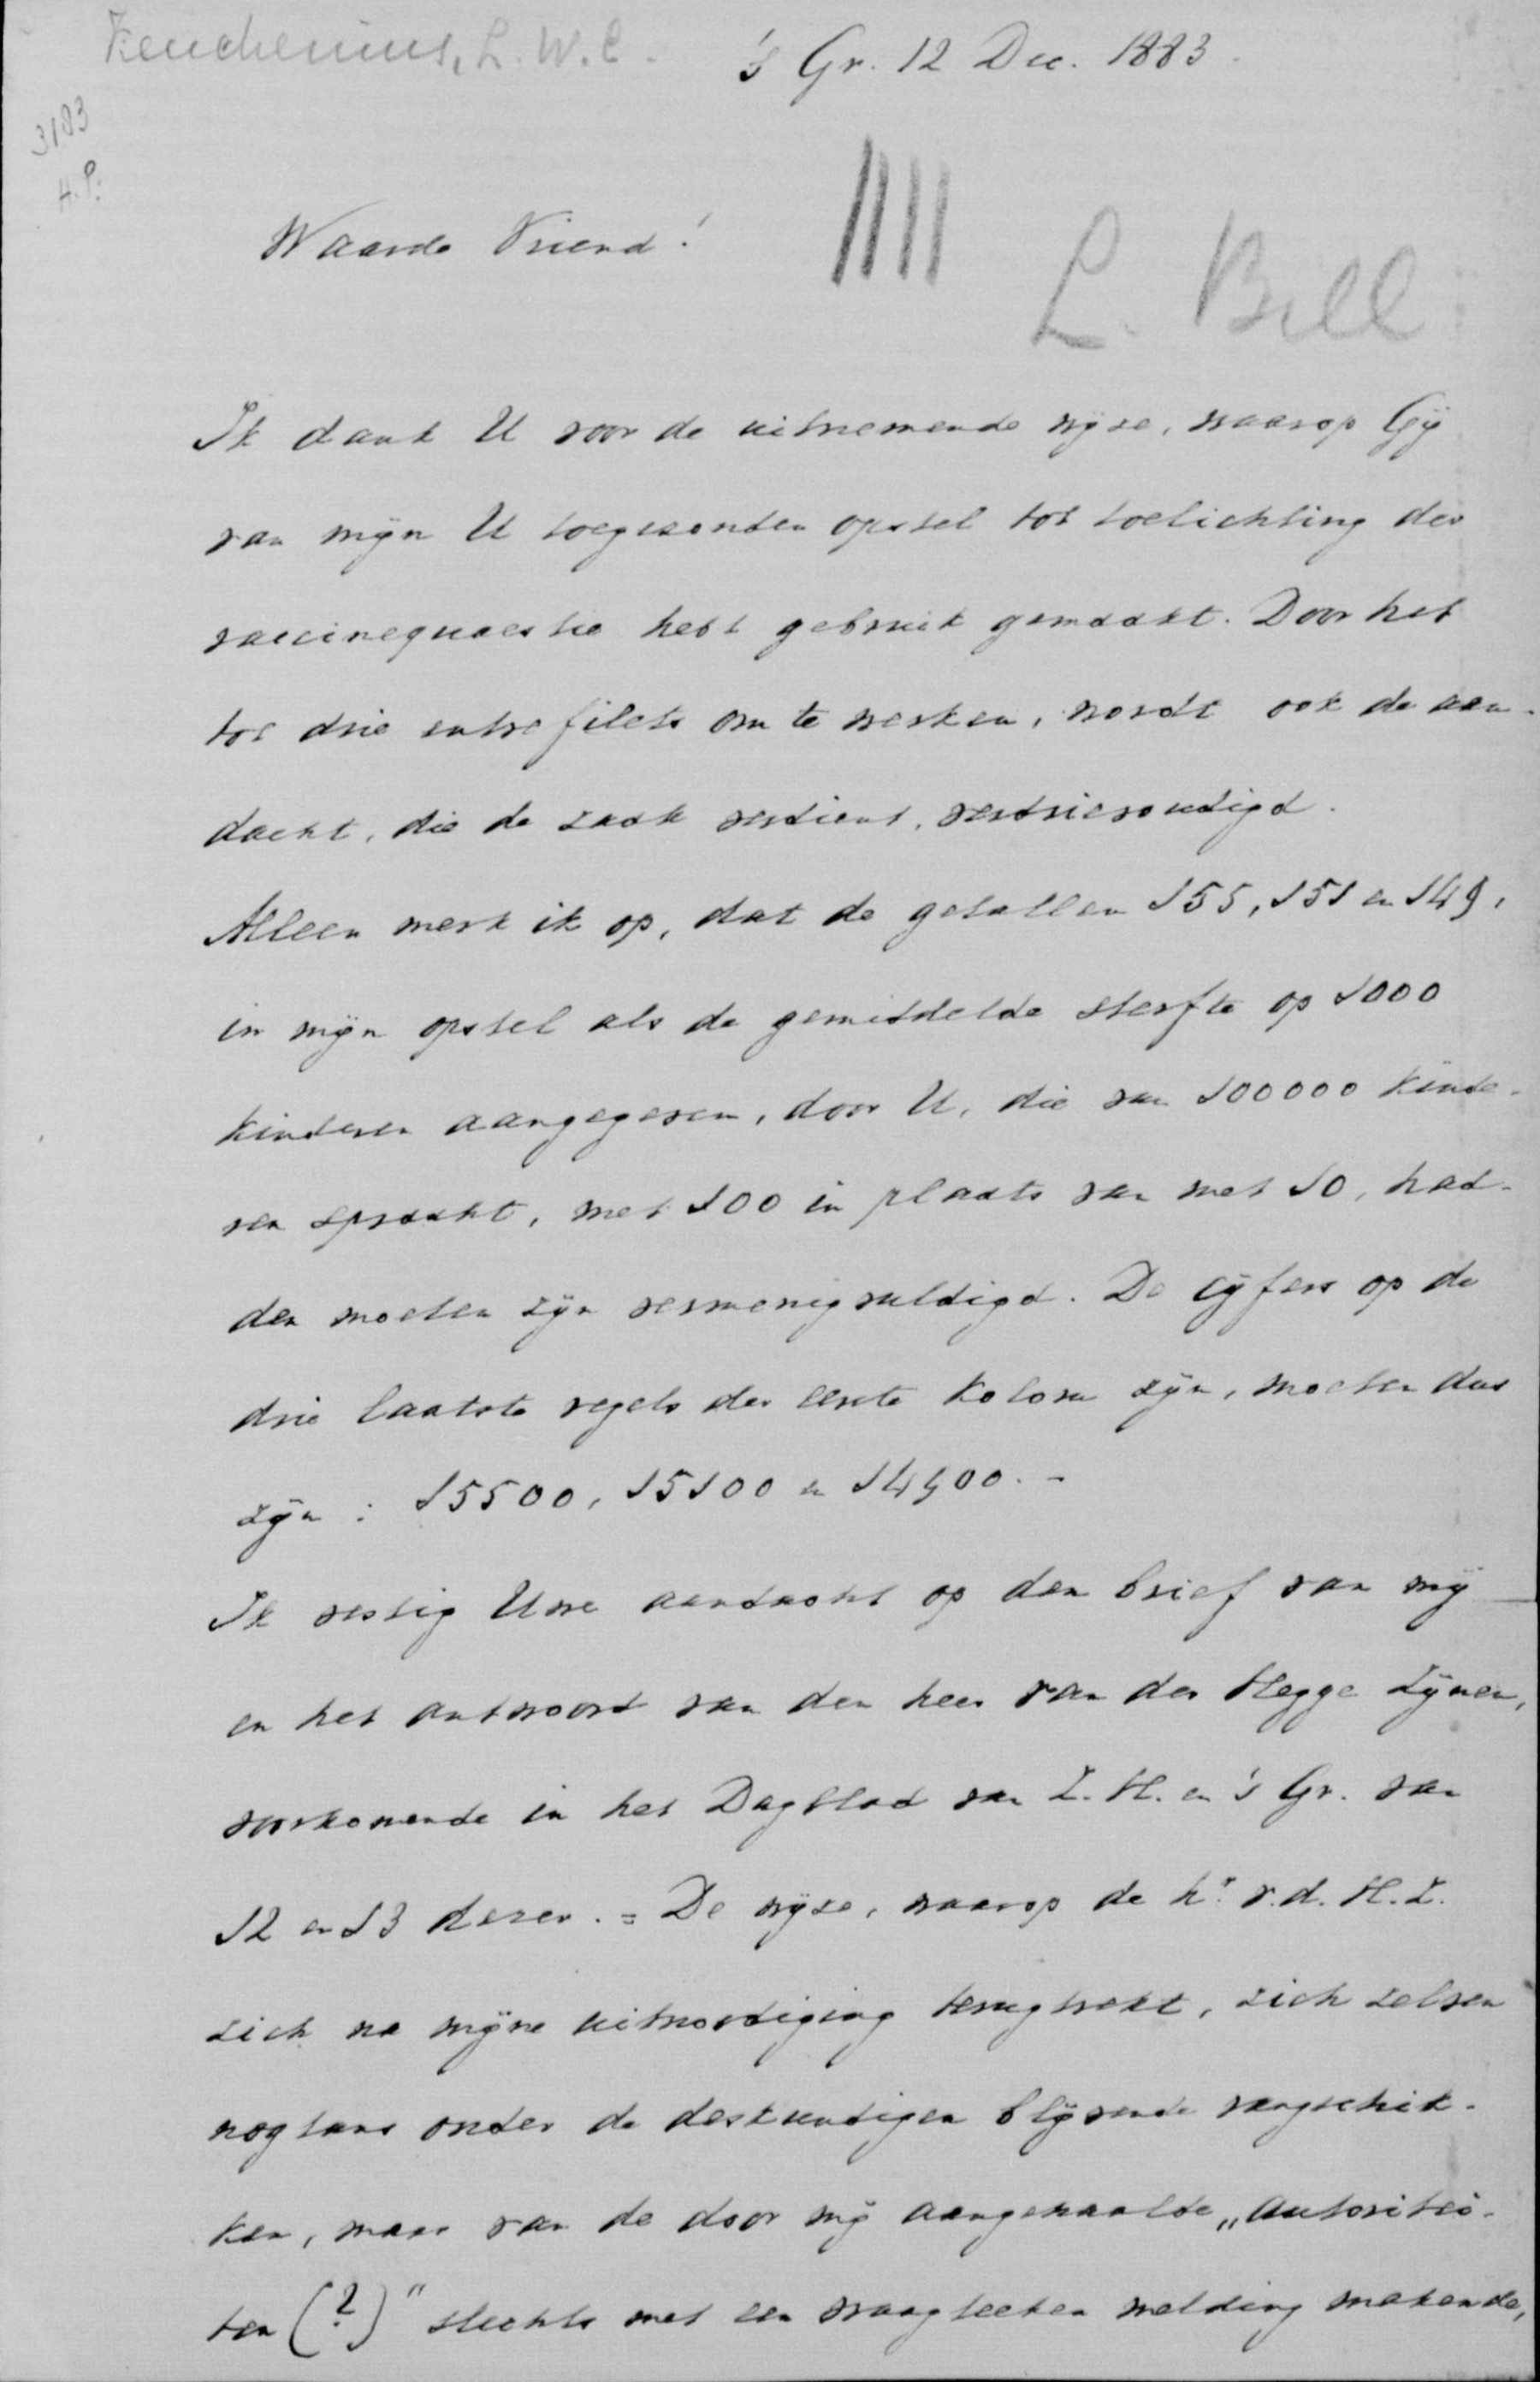 Keuchenius, L. W. C.
's Gr. 12 Dec. 1883.
3183
H. P.
Waarde Vriend!
L. Bill
Ik dank U voor de uitnemende wijze, waarop Gij
van mijn U toegezonden opstel tot toelichting der
vaccinequaestie hebt gebruik gemaakt. Door het
tot drie entrefilets om te werken, wordt ook de aan-
dacht, die de zaak verdient, verdrievoudigd.
Alleen merk ik op, dat de getallen 155, 151 en 149,
in mijn opstel als de gemiddelde sterfte op 1000
kinderen aangegeven, door U, die van 100000 kinde-
ren spraakt, met 100 in plaats van met 10, had-
den moeten zijn vermenigvuldigd. De cijfers op de
drie laatste regels der eerste kolom zijn, moeten dus
zijn: 15500, 15100 en 14900. -
Ik vestig Uwe aandacht op den brief van mij
en het antwoord van den heer van der Hegge Zijnen,
voorkomende in het Dagblad van Z. H. en 's Gr. van
12 en 13 dezer. = De wijze, waarop de hr. v. d. H. Z.
zich na mijne uitnoodiging terugtrekt, zich zelven
nogtans onder de deskundigen blijvende rangschik-
ken, maar van de door mij aangehaalde „autoritei-
ten (?)" slechts met een vraagteeken melding makende,